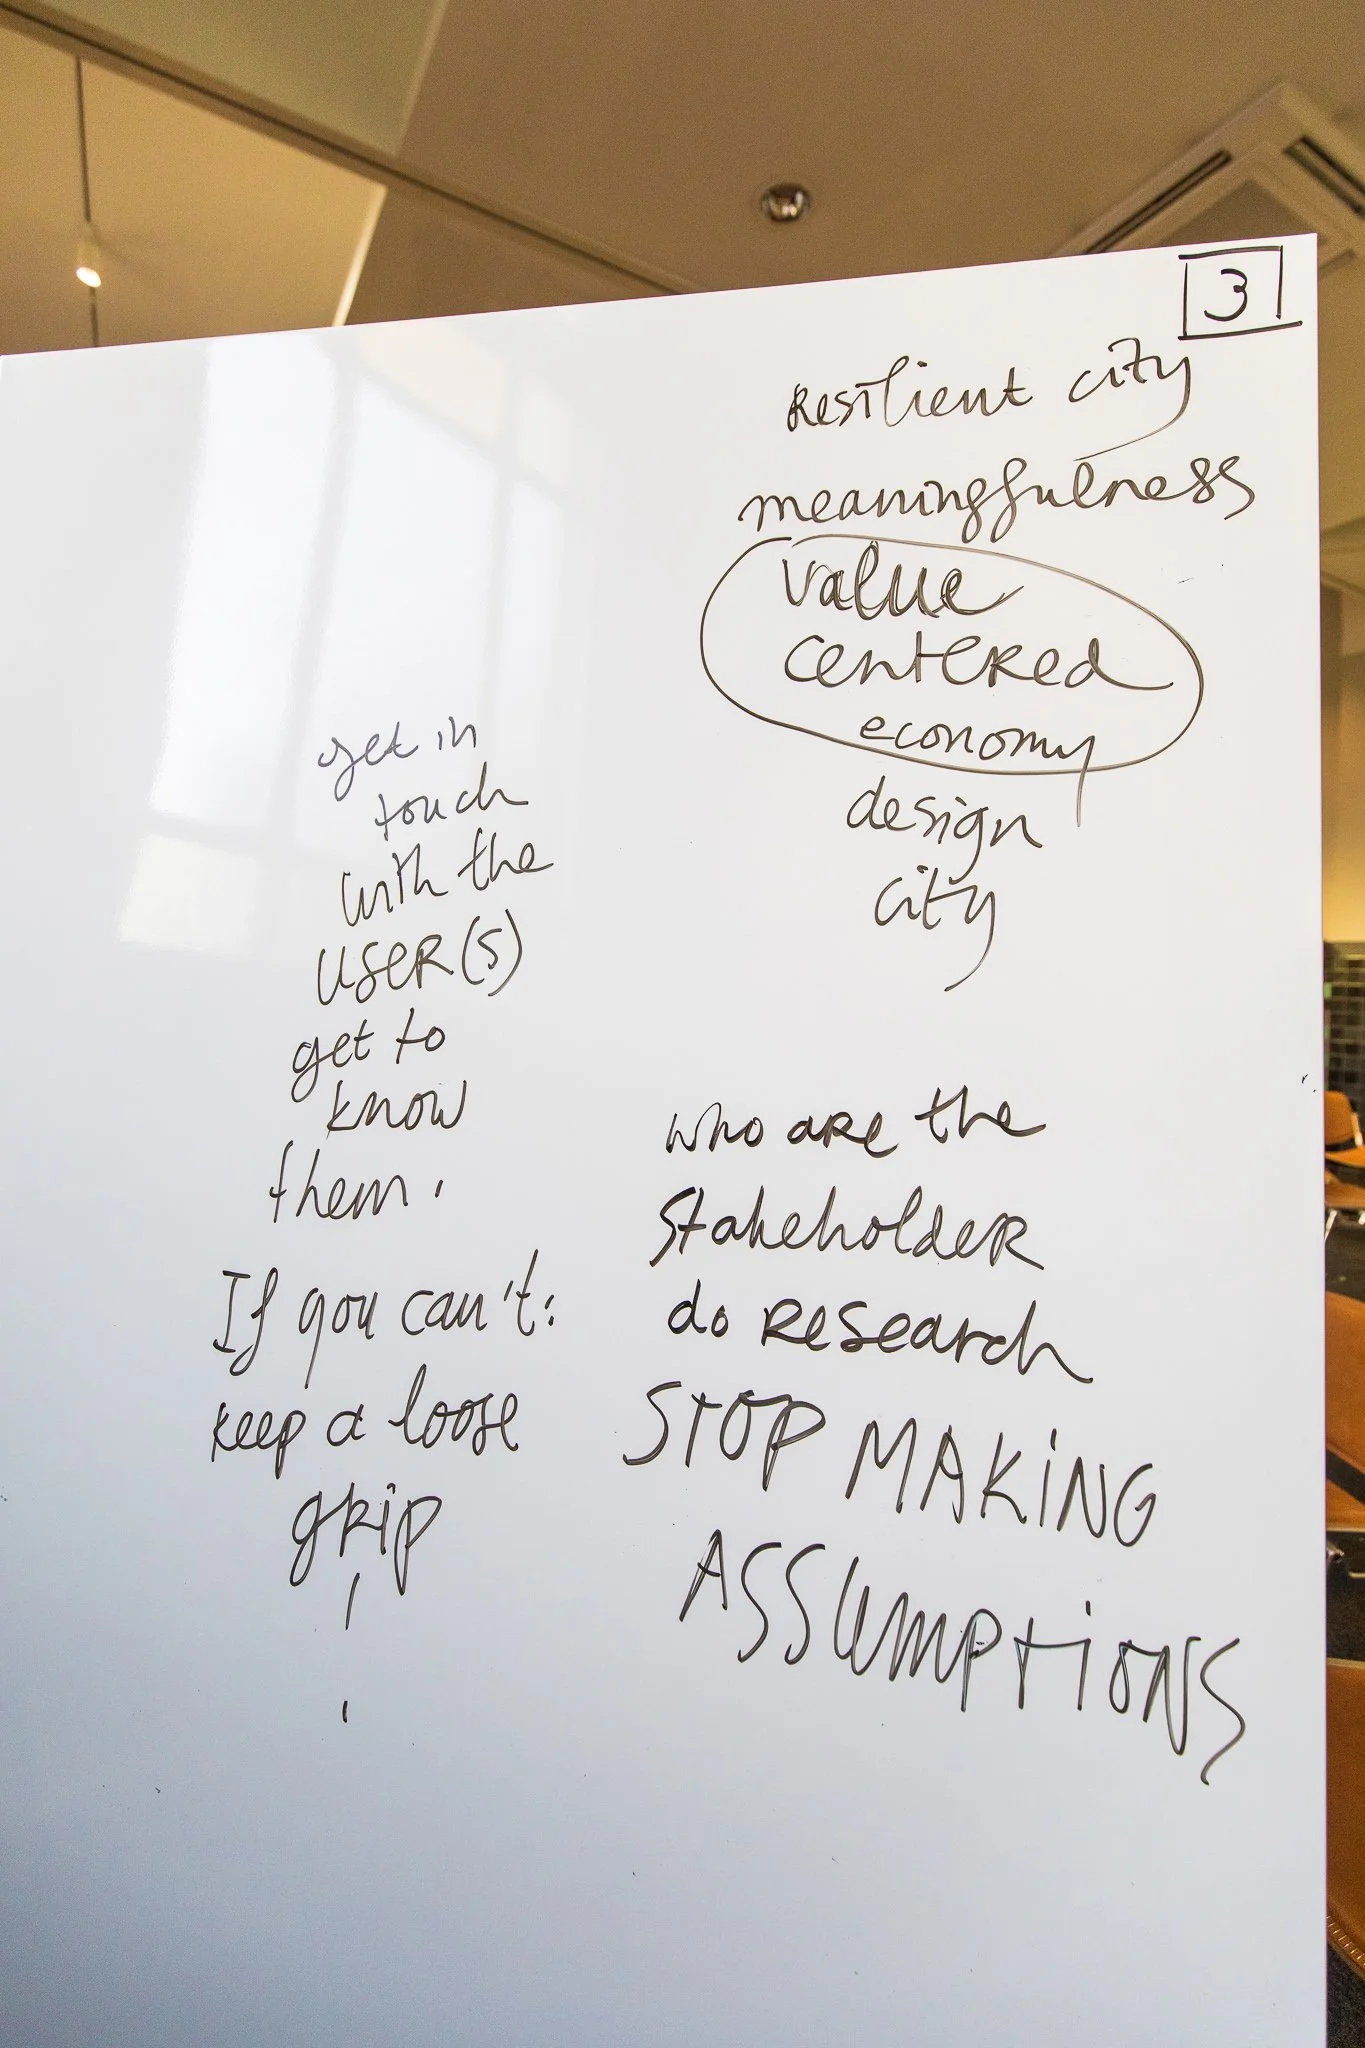 3
Resilient city
meaningfulness
value
centered
economy
design
city
get in
touch
with the
USER(S)
get to
know
them.
If you can't:
keep a loose
grip
!
who are the
stakeholder
do research
STOP MAKING
ASSUMPTIONS